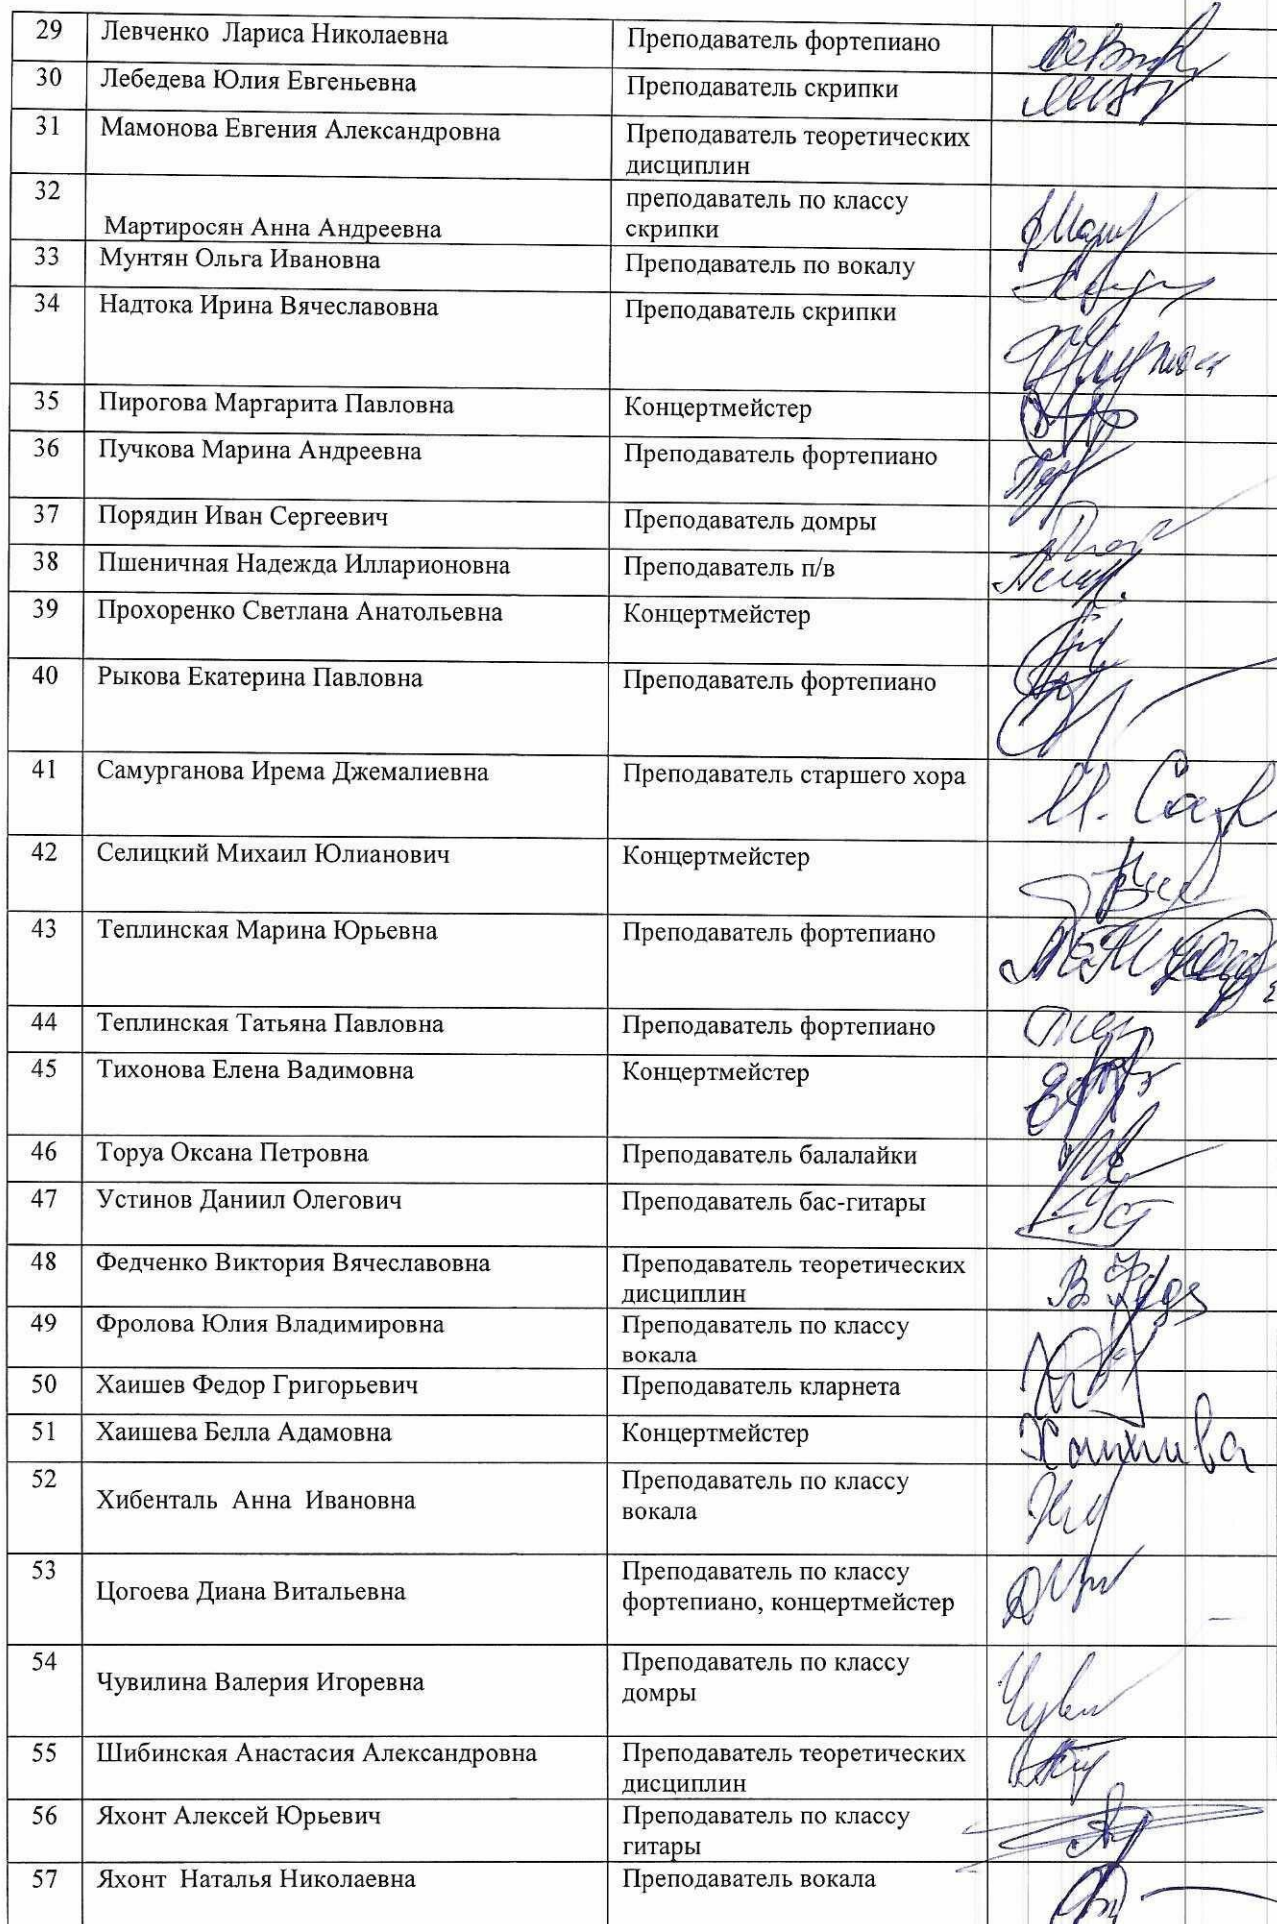 29 Левченко Лариса Николаевна Преподаватель фортепиано
30 Лебедева Юлия Евгеньевна Преподаватель скрипки
31 Мамонова Евгения Александровна Преподаватель теоретических
дисциплин
32 преподаватель по классу
Мартиросян Анна Андреевна скрипки
33 Мунтян Ольга Ивановна Преподаватель по вокалу
34 Надтока Ирина Вячеславовна Преподаватель скрипки
35 Пирогова Маргарита Павловна Концертмейстер
36 Пучкова Марина Андреевна Преподаватель фортепиано
37 Порядин Иван Сергеевич Преподаватель домры
38 Пшеничная Надежда Илларионовна Преподаватель п/в
39 Прохоренко Светлана Анатольевна Концертмейстер
40 Рыкова Екатерина Павловна Преподаватель фортепиано
41 Самурганова Ирема Джемалиевна Преподаватель старшего хора
42 Селицкий Михаил Юлианович Концертмейстер
43 Теплинская Марина Юрьевна Преподаватель фортепиано
44 Теплинская Татьяна Павловна Преподаватель фортепиано
45 Тихонова Елена Вадимовна Концертмейстер
46 Торуа Оксана Петровна Преподаватель балалайки
47 Устинов Даниил Олегович Преподаватель бас-гитары
48 Федченко Виктория Вячеславовна Преподаватель теоретических
дисциплин
49 Фролова Юлия Владимировна Преподаватель по классу
вокала
50 Хаишев Федор Григорьевич Преподаватель кларнета
51 Хаишева Белла Адамовна Концертмейстер
52 Преподаватель по классу
Хибенталь Анна Ивановна вокала
53 Преподаватель по классу
Цогоева Диана Витальевна фортепиано, концертмейстер
54 Преподаватель по классу
Чувилина Валерия Игоревна домры
55 Шибинская Анастасия Александровна Преподаватель теоретических
дисциплин
56 Яхонт Алексей Юрьевич Преподаватель по классу
гитары
57 Яхонт Наталья Николаевна Преподаватель вокала